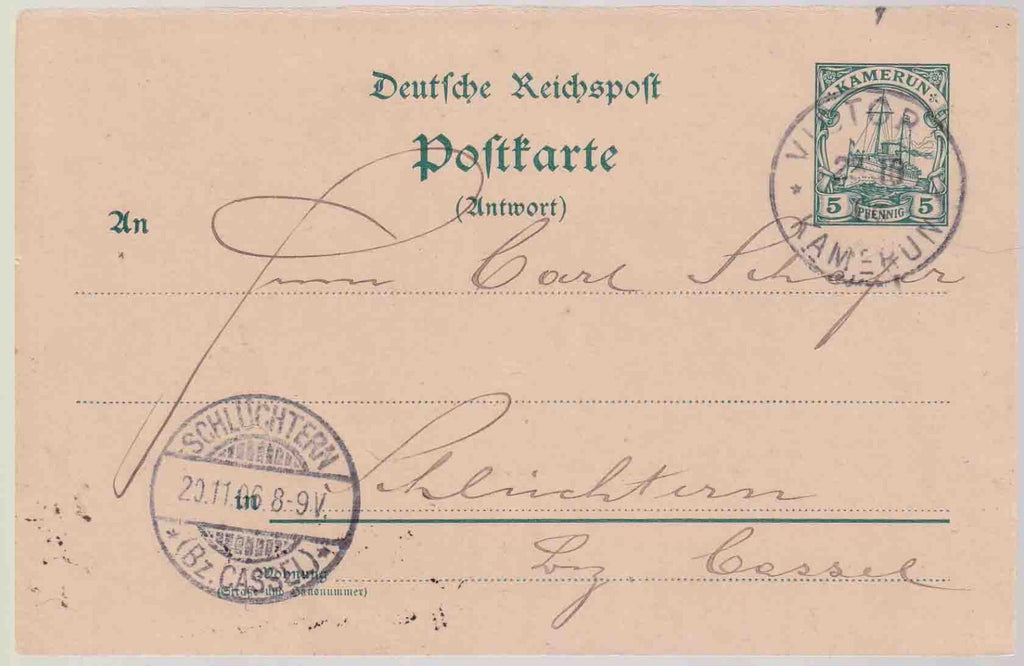 Deutsche Reichspost
Postkarte
(Antwort)
KAMERUN
5 PFENNIG 5
VICTORIA
KAMERUN
An
Herrn Carl Schäfer
SCHLÜCHTERN
20.11.06 8-9V.
* (Bz. CASSEL) *
in Schlüchtern
Bz. Cassel
Wohnung
(Straße und Hausnummer)